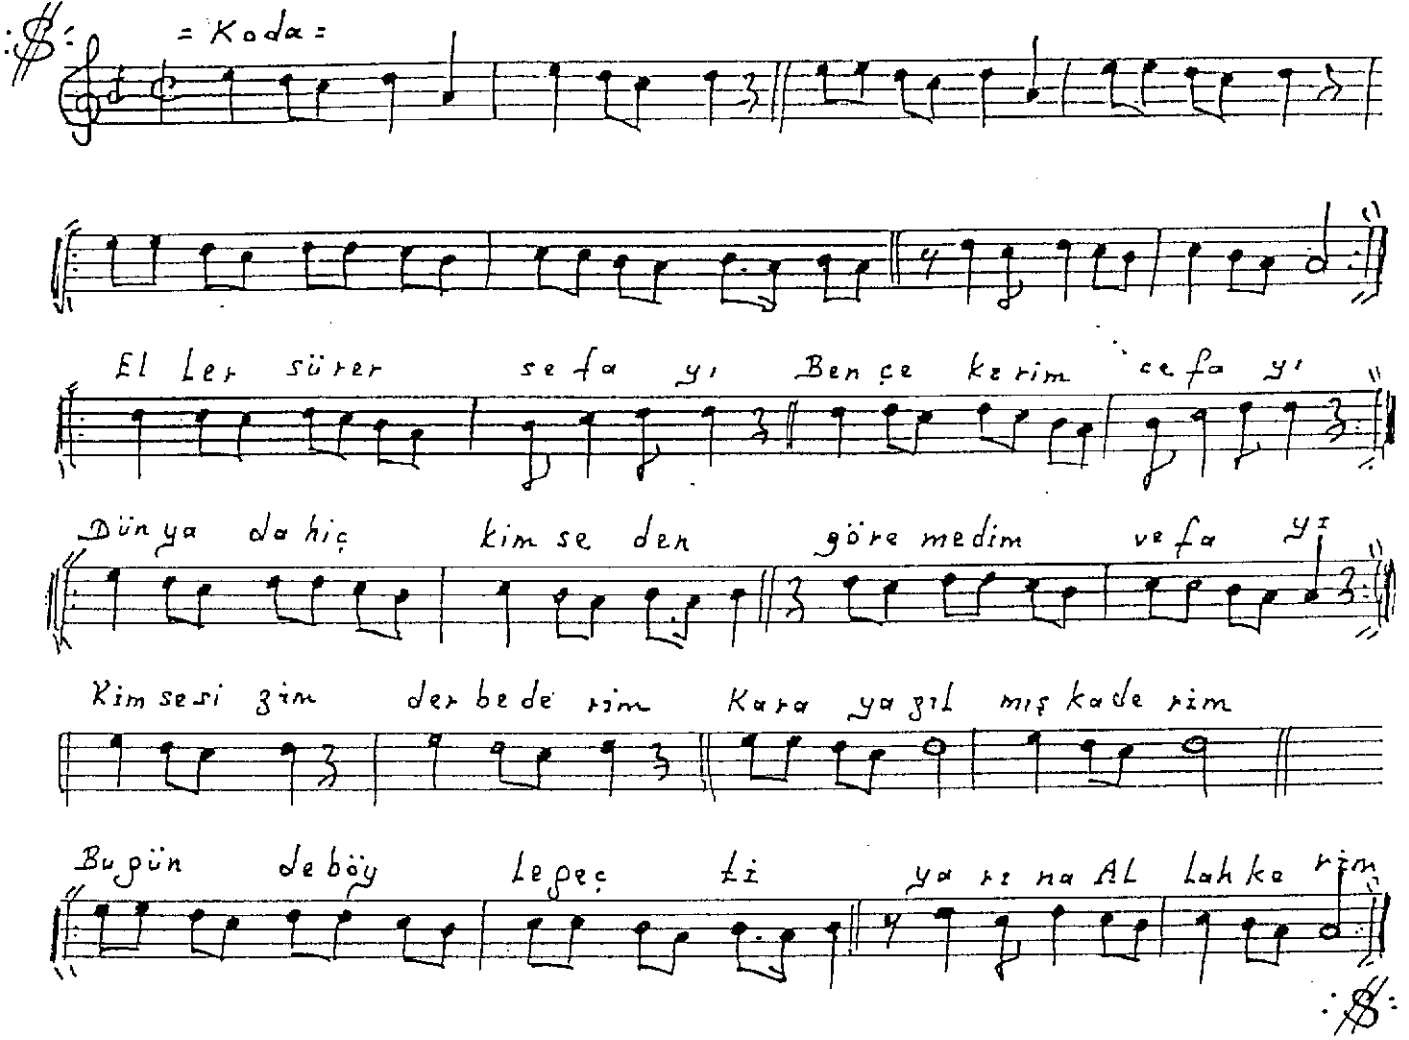 = Koda =
El ler sürer se fa yı Ben çe ke rim ce fa yı
Dün ya da hiç kim se den göre medim ve fa yı
Kim sesi zim der be de rim Kara ya zıl mış ka de rim
Bu gün de böy le geç ti ya rı na AL Lah ke rim